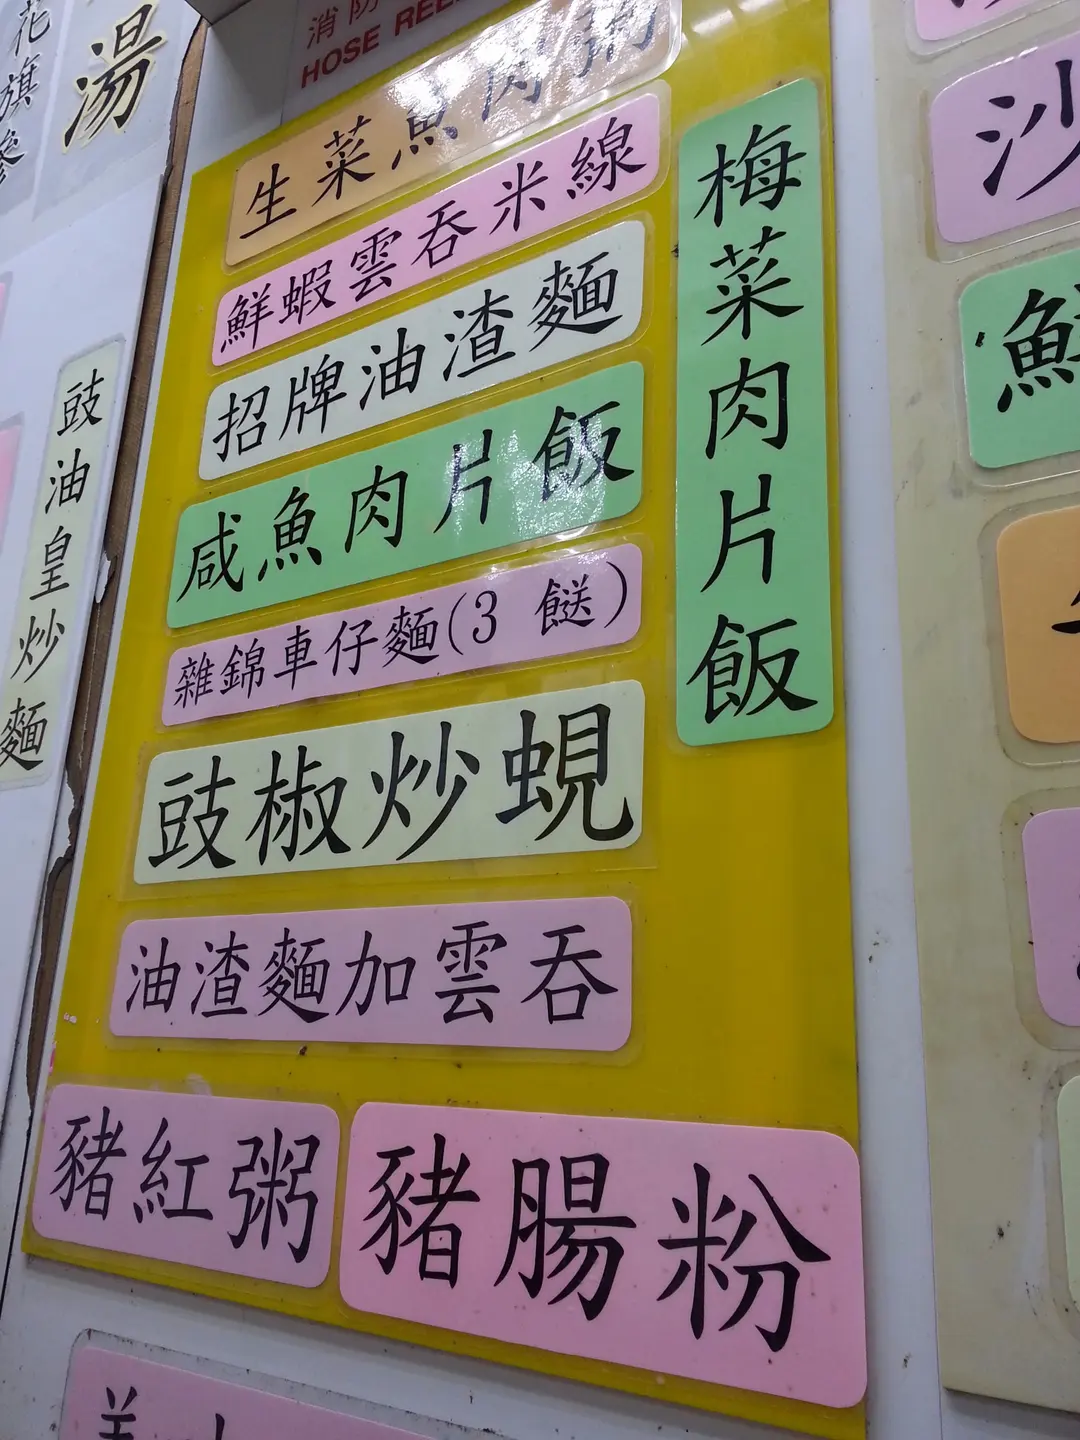 湯
花旗參
消防
HOSE REEL
生菜魚肉
鮮蝦雲吞米線
招牌油渣麵
咸魚肉片飯
雜錦車仔麵(3 餸)
豉椒炒蜆
油渣麵加雲吞
豬紅粥
豬腸粉
梅菜肉片飯
豉油皇炒麵
沙
鮮